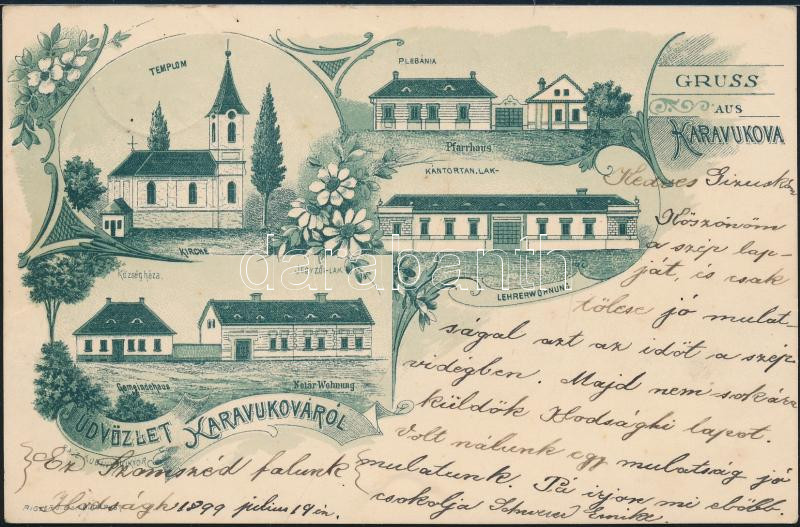 TEMPLOM
KIRCHE
PLEBÁNIA
Pfarrhaus
GRUSS
AUS
KARAVUKOVA
KÁNTORTAN. LAK-
LEHRERWOHNUNG
Községháza.
JEGYZŐI-LAK.
Gemeindehaus
Notär-Wohnung
ÜDVÖZLET KARAVUKOVÁRÓL
darabanth
Kedves
Köszönöm
a szép lap-
ját, és csak
töltse jó mulat-
sággal azt az időt a szép
videgben. Majd nem sokára
küldök Hodsághi lapot.
Volt nálunk egy mulatság jó
mulatunk. Pá írjon mi előbb.
csokolja Emike.
Ez Szomszéd falunk
Hodságh 1899 július 19 én.